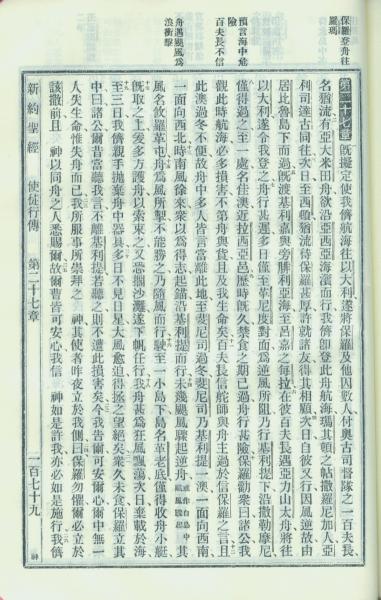 保羅登舟往
羅瑪
預言海中危
險
百夫長不信
舟遇颶風為
浪衝擊
第二十七章 既擬定使我儕航海往以大利遂將保羅及他囚數人付與古司督隊之一百夫長
名猶流有亞大米田舟欲沿亞西亞海濱而行我儕卽登此舟航海瑪其頓之帖撒羅尼加人亞
利司達古同往次日至西頓猶流待保羅甚厚許就諸友得其相顧自彼又行因風逆故由
居比魯島下而過旣渡基利嘉與旁腓利亞海至呂嘉之每拉在彼百夫長遇亞力山太舟將往
以大利遂令我登之舟行甚遲多日僅至革尼度對面為逆風所阻乃行基利提下沿撒勒摩尼
僅得過之至一處名佳澳近拉西亞邑歷時旣久禁食之期已過舟行甚險保羅勸衆曰諸公我
觀此時航海必多損害不第舟與貨且及我生命矣百夫長信舵師與舟主過於信保羅之言且
此澳過冬不便故舟中多人皆言當離此地至斐尼司過冬斐尼司乃基利提一澳一面向西南
一面向西北時南風徐來衆以為得志起錨沿基利提而行未幾颶風驟起逆舟其
風名歐羅革屯舟為風所掣不能勝之乃隨風而行駛至一小島下島名革老底僅得收舟小艇
旣取之上愛多方護舟以索束之又恐擱沙灘遂下帆任行我舟甚為狂風飄蕩次日棄載於海
至三日我儕親手拋棄舟中器具多日不見日星大風愈迫得拯之望絕矣衆久未食保羅立其
中曰諸公爾昔當聽我言不離基利提若聽之則不遭此損害矣今我吿爾可安心爾中無一
人失生命惟失舟而已我所服事所崇拜之 神其使者昨夜立於我側曰保羅勿懼爾必立於
該撒前且 神以同舟之人悉賜爾故爾曹皆可安心我信 神如是許我亦必如是施行我儕
新約聖經 使徒行傳 第二十七章 一百七十九 神